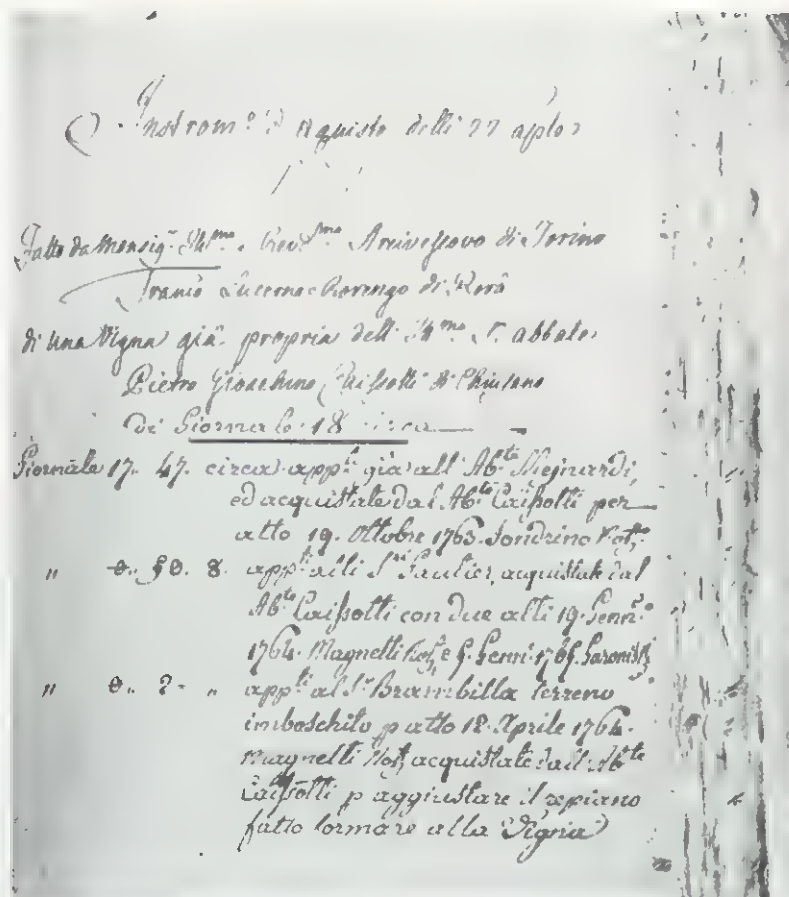 Instrom.º d'Aquisto delli 27 aplē
Fatto da Monsig.r Ill.mo e Rev.mo Arcivescovo di Torino
Franco Lucerna Rorengo di Rorà
di una Vigna già propria dell' Ill.mo S. abbate
Pietro Gioachino Caissotti di Chiusano
di Giornate 18 circa
Giornate 17. 47. circa app.ti già all' Ab.te Mejnardi,
ed acquistate dal Ab.te Caissotti per
atto 19. Ottobre 1763. Not.º
„ 0.. 50. 8. app.ti alli S.ri Paulier, acquistate dal
Ab.te Caissotti con due atti 19. Genn.º
1764. Magnetti Not.º e 5. Genn.º 1765.
„ 0.. 2. „ app.ti al S.r Brambilla terreno
imboschito p atto 18. Aprile 1764.
Magnetti Not.º acquistate dall' Ab.te
Caissotti p aggiustare il repiano
fatto formare alla Vigna